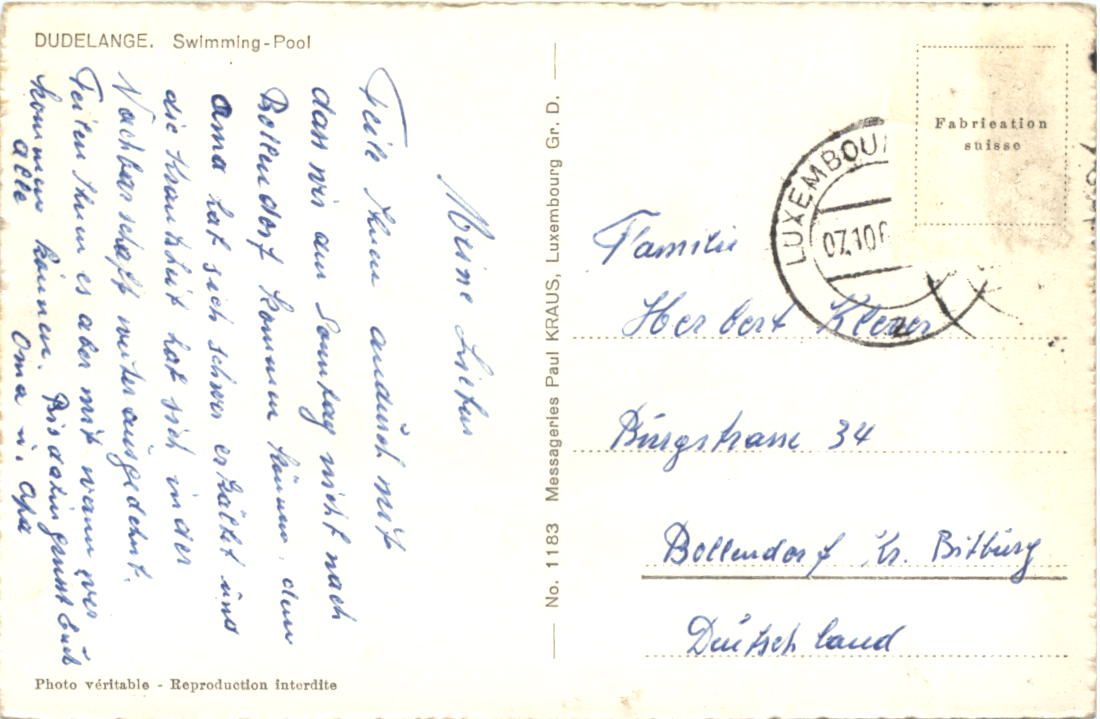 DUDELANGE. Swimming-Pool
Meine Lieben
Teile Ihnen andurch mit
dass wir am Sonntag nicht nach
Bollendorf kommen können, denn
Oma hat sich schwer erkältet und
die Krankheit hat sich in der
Nachbarschaft weiter ausgedehnt.
Teilen Ihnen es aber mit wann wir
kommen können. Bis dahin grüsst Euch
alle Oma u. Opa
Photo véritable - Reproduction interdite
No. 1183 Messageries Paul KRAUS, Luxembourg Gr. D.
Fabrication
suisse
LUXEMBOU
07.10.6
Familie
Herbert
Burgstrasse 34
Bollendorf Kr. Bitburg
Deutschland